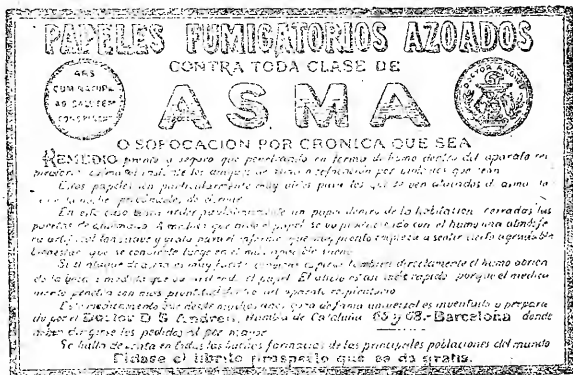 PAPELES FUMIGATORIOS AZOADOS
CONTRA TODA CLASE DE
ARS
CUM NATURA
AD SALUTEM
CONSPIRANT
ASMA
DOCTOR ANDREU
O SOFOCACION POR CRONICA QUE SEA
REMEDIO pronto y seguro que penetrando en forma de humo dentro del aparato res
los ataques de asma o sofocacion por violentos que sean
Estos papeles son particularmente muy utiles para los que se ven atacados de asma
de dormir
En este caso basta arder un papel dentro de la habitacion cerradas las
puertas de a medida que arde el papel se va produciendo con el humo una atmosfe
ra tan suave y grata para el enfermo que muy pronto empieza a sentir cierto agradable
bienestar que se convierte luego en el mas apacible sueno
Si el ataque de asma es muy fuerte aspirar tambien directamente el humo
de la boca a medida que va ardiendo el papel. El alivio es tan rapido porque el medica
mento penetra con mas prontitud dentro del aparato respiratorio
Este medicamento que desde muchos anos goza de fama universal es inventado y prepara
do por el Doctor D. S. Andreu, Rambla de Cataluña 66 y 68.-Barcelona donde
deben dirigirse los pedidos al por mayor
Se halla de venta en todas las buenas farmacias de las principales poblaciones del mundo
Pidase el librito prospecto que se da gratis.